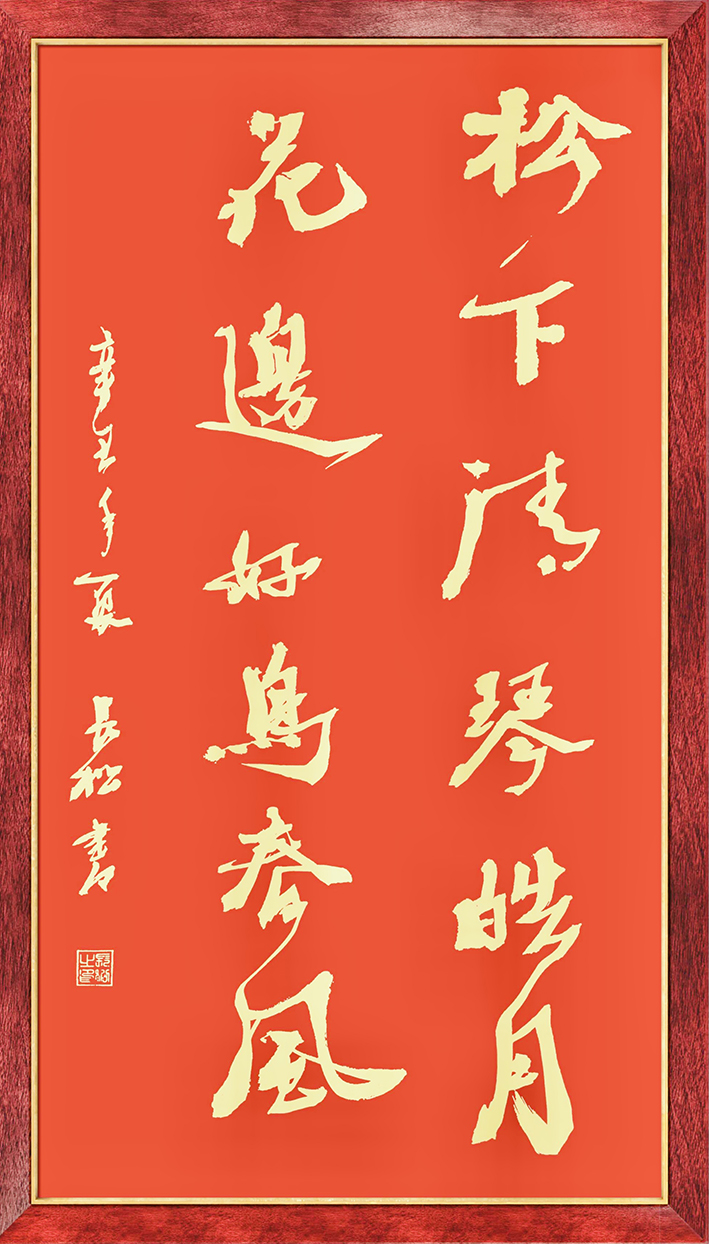 松下清琴皓月
花邊好鳥春風
辛丑年夏 長松書